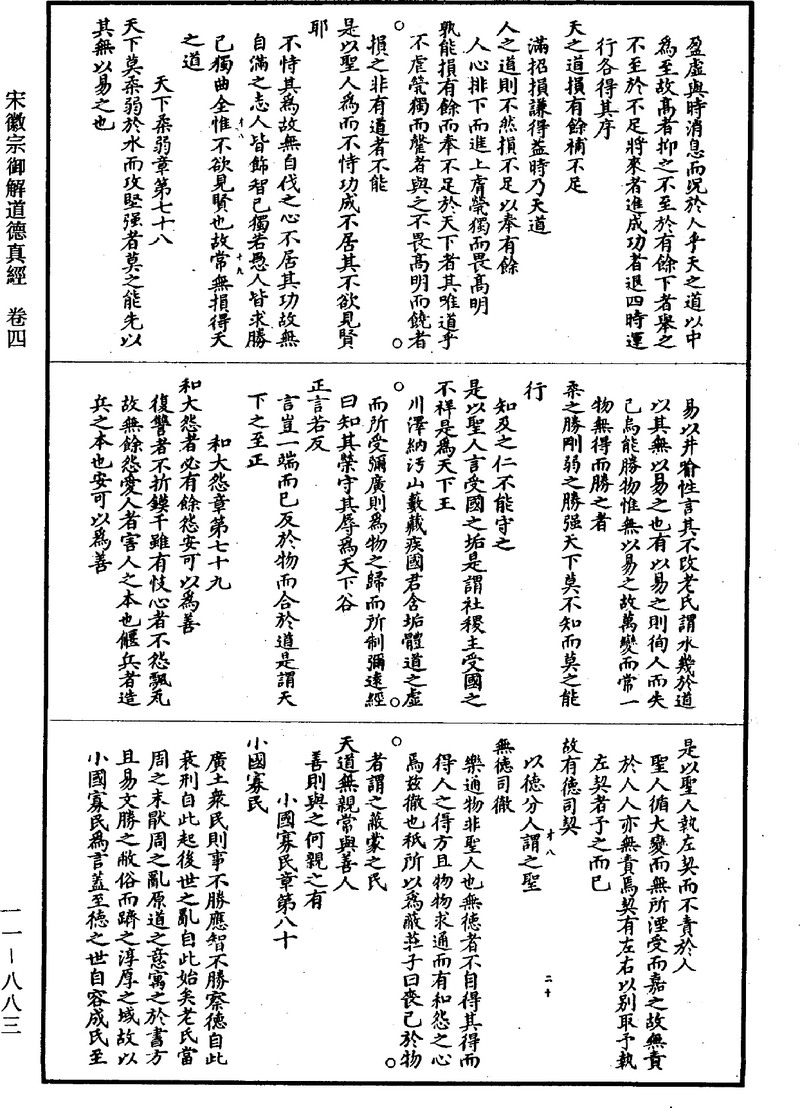 宋徽宗御解道德真經　卷四
盈虛與時消息而況於人乎天之道以中
爲至故高者抑之不至於有餘下者舉之
不至於不足將來者進成功者退四時運
行各得其序
天之道損有餘補不足
滿招損謙得益時乃天道
人之道則不然損不足以奉有餘
人心排下而進上虐煢獨而畏高明
孰能損有餘而奉不足於天下者其唯道乎
不虐煢獨而罄者與之不畏高明而饒者
損之非有道者不能
是以聖人爲而不恃功成不居其不欲見賢
耶
不恃其爲故無自伐之心不居其功故無
自滿之志人皆飾智己獨若愚人皆求勝
己獨曲全惟不欲見賢也故常無損得天
之道
天下柔弱章第七十八
天下莫柔弱於水而攻堅强者莫之能先以
其無以易之也
易以井喻性言其不改老氏謂水幾於道
以其無以易之也有以易之則徇人而失
己烏能勝物惟無以易之故萬變而常一
物無得而勝之者
柔之勝剛弱之勝强天下莫不知而莫之能
行
知及之仁不能守之
是以聖人言受國之垢是謂社稷主受國之
不祥是爲天下王
川澤納汚山藪藏疾國君含垢體道之虛
而所受彌廣則爲物之歸而所制彌遠經
曰知其榮守其辱爲天下谷
正言若反
言豈一端而已反於物而合於道是謂天
下之至正
和大怨章第七十九
和大怨者必有餘怨安可以爲善
復讐者不折鏌干雖有忮心者不怨飄瓦
故無餘怨愛人者害人之本也偃兵者造
兵之本也安可以爲善
是以聖人執左契而不責於人
聖人循大變而無所湮受而嘉之故無責
於人人亦無責焉契有左右以別取予執
左契者予之而已
故有德司契
以德分人謂之聖
無德司徹
樂通物非聖人也無德者不自得其得而
得人之得方且物物求通而有和怨之心
焉茲徹也秖所以爲蔽莊子曰喪己於物
者謂之蔽蒙之民
天道無親常與善人
善則與之何親之有
小國寡民章第八十
小國寡民
廣土衆民則事不勝應智不勝察德自此
衰刑自此起後世之亂自此始矣老氏當
周之末厭周之亂原道之意寓之於書方
且易文勝之敝俗而躋之淳厚之域故以
小國寡民爲言蓋至德之世自容成氏至
十八
十九
十八
二十
一一―八八三